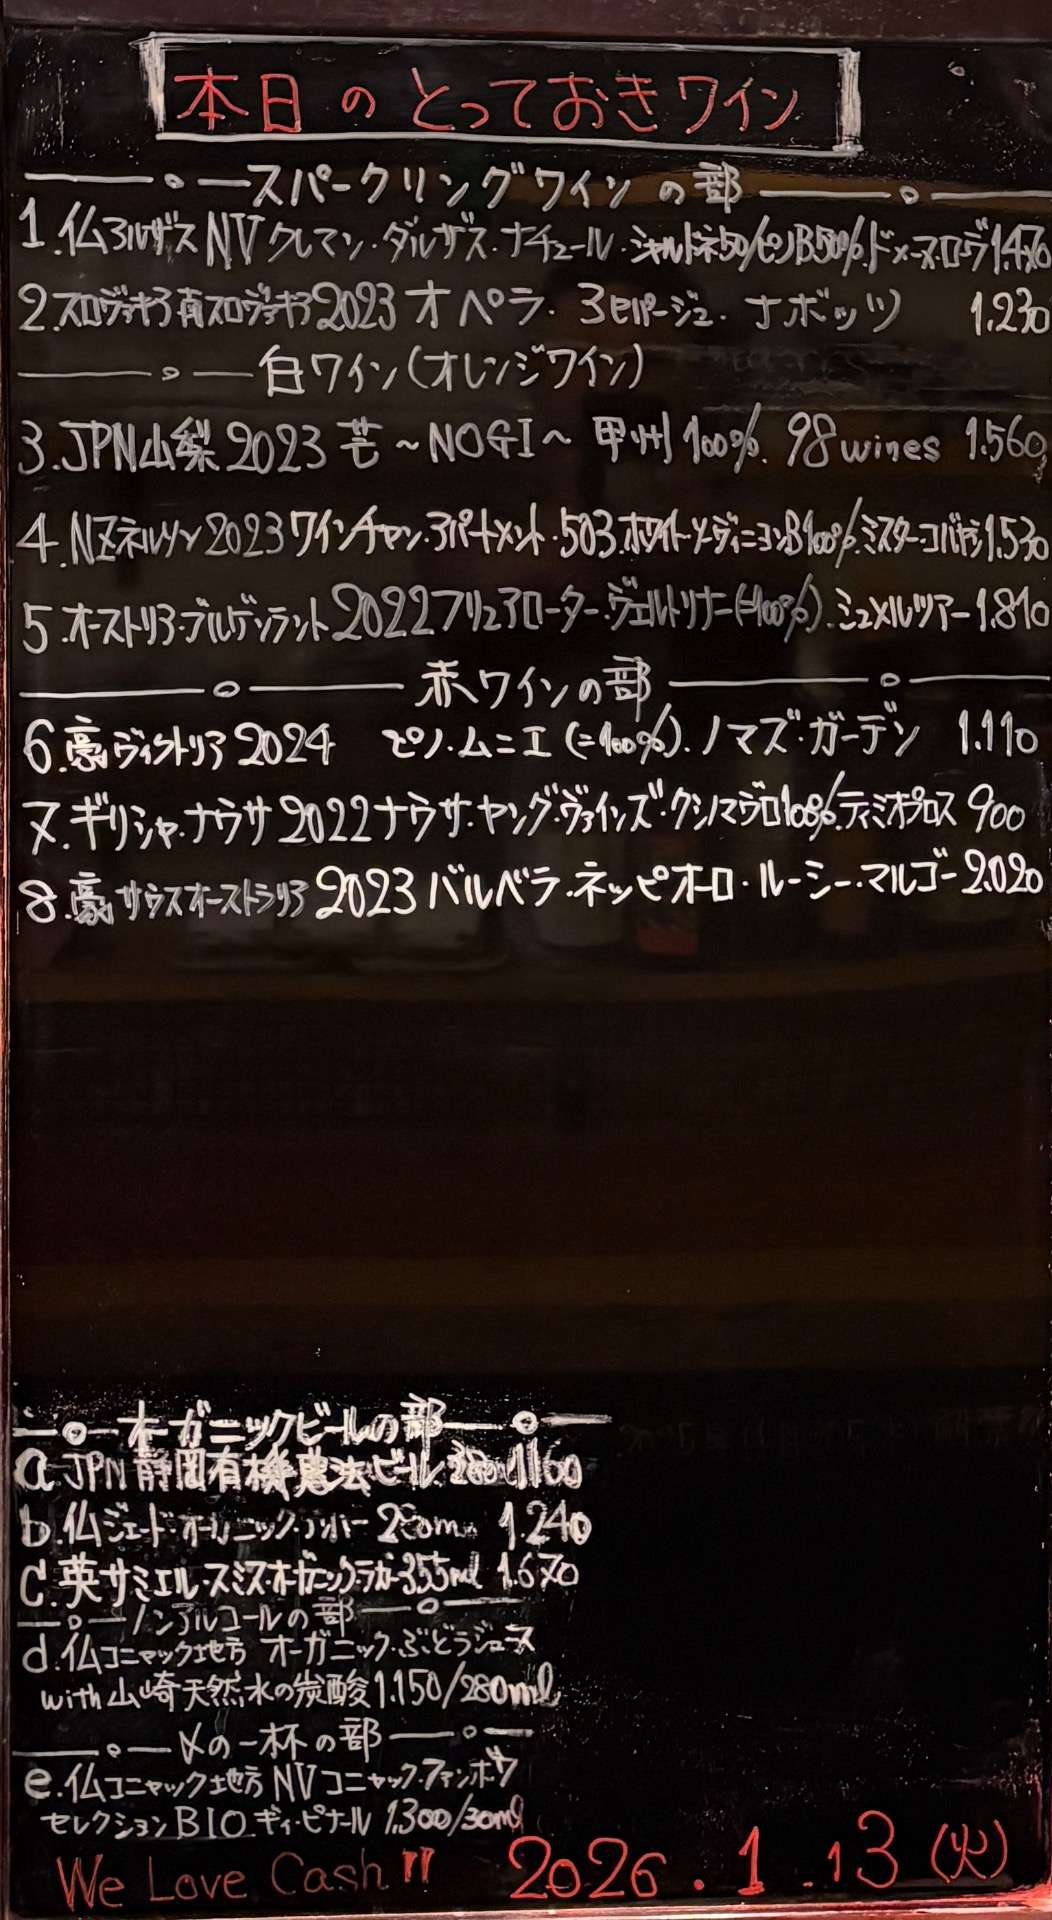 本日のとっておきワイン
スパークリングワインの部
1.仏アルザスNVクレマン・ダルザス・ナチュール・シャルドネ50/ピノB50%.ドメーヌ・ローヴ 1.470
2.スロヴァキア南スロヴァキア2023 オペラ・ アセパージュ. ナボッソ 1.230
白ワイン(オレンジワイン)
3.JPN山梨2023 芒~NOGI~ 甲州100%. 98wines 1.560
4.NZネルソン2023ワインチャン・アパートメント・503.ホワイト・メディニヨンB100%.ミスター・コバヤシ1.530
5.オーストリア・ブルゲンラント2022フリュアローター・ヴェルトリナー(=100%).シュメルツアー1.810
赤ワインの部
6.豪ヴィクトリア2024 ピノ・ムニエ(=100%).ノマズ・ガーデン 1.110
7.ギリシャ・ナウサ2022ナウサ・ヤング・ヴァインズ・クシノマヴロ100%.ティミオプロス 900
8.豪サウスオーストラリア2023バルベラ・ネッピオーロ・ルーシー・マルゴー2.020
オーガニックビールの部
a.JPN静岡有機農法ビール 1160
b.仏ジェード・オーガニック・アンバー 250ml 1.240
c.英サミエル・スミス・オーガニックラガー355ml 1.670
ノンアルコールの部
d.仏コニャック地方 オーガニック・ぶどうジュース
with山崎天然水の炭酸1.150/280ml
〆の一杯の部
e.仏コニャック地方NVコニャック・ファンボワ
セレクションBIO.ギィ・ピナール 1.300/30ml
We Love Cash!! 2026.1.13(火)